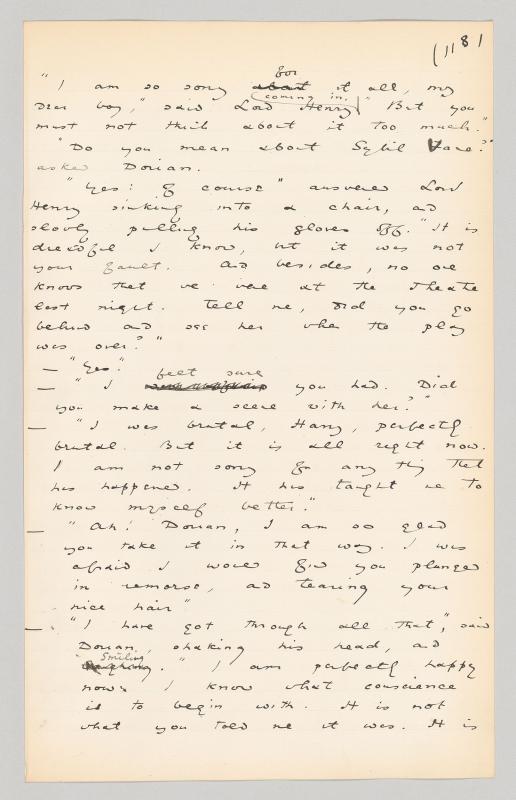 (118)
for
"I am so sorry about it all, my
coming in.
Dear boy," said Lord Henry "But you
must not think about it too much."
"Do you mean about Sybil Vane?"
asked Dorian.
"Yes: of course" answered Lord
Henry sinking into a chair, and
slowly pulling his gloves off. "It is
dreadful I know, but it was not
your fault. And besides, no one
knows that we were at the Theatre
last night. Tell me, did you go
behind and see her when the play
was over?"
— "Yes."
felt sure
— "I you had. Did
you make a scene with her?"
— "I was brutal, Harry, perfectly
brutal. But it is all right now.
I am not sorry for any thing that
has happened. It has taught me to
know myself better."
— "Ah! Dorian, I am so glad
you take it in that way. I was
afraid I would find you plunged
in remorse, and tearing your
nice hair"
— "I have got through all that", said
Dorian, shaking his head, and
smiling
laughing. "I am perfectly happy
now. I know what conscience
is to begin with. It is not
what you told me it was. It is